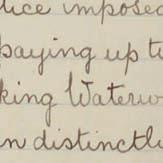 tice imposed
paying up to
king Waterw
n distinctly